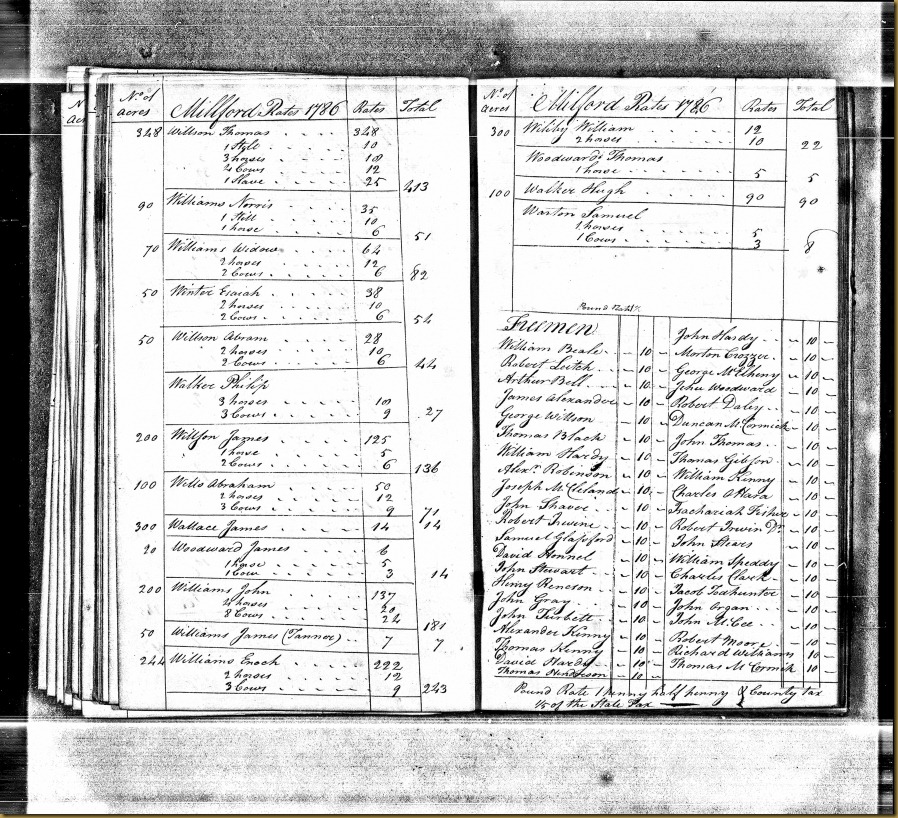 No. of Acres Millford Rates 1786 Rates Total
348 Willson Thomas 348
1 Still 10
3 horses 18
4 Cows 12
1 Slave 25 413
90 Williams Norris 35
1 Still 10
1 horse 6 51
70 Williams Widow 64
2 horses 12
2 Cows 6 82
50 Winter Esaiah 38
2 horses 10
2 Cows 6 54
50 Willson Abram 28
2 horses 10
2 Cows 6 44
Walker Philip
3 horses 18
3 Cows 9 27
200 Willson James 125
1 horse 5
2 Cows 6 136
100 Wells Abraham 50
2 horses 12
3 Cows 9 71
300 Wallace James 14 14
20 Woodward James 6
1 horse 5
1 Cow 3 14
200 Williams John 137
4 horses 20
8 Cows 24 181
50 Williams James (Tanner) 7 7
244 Williams Enoch 222
2 horses 12
3 Cows 9 243
No. of Acres Millford Rates 1786 Rates Total
300 William 12
2 horses 10 22
Woodward Thomas
1 horse 5 5
100 Walker Hugh 90 90
Warton Samuel
1 horses 5
1 Cows 3 8
Pound Rate
Freemen
William Beale 10
Robert Leitch 10
Arthur Bell 10
James Alexander 10
George Willson 10
Thomas Black 10
William Hardy 10
Alexr. Robinson 10
Joseph McCleland 10
John Shaver 10
Robert Irwine 10
Samuel Glassford 10
David Hennel 10
John Stewart 10
Henry Reneson 10
John Gray 10
John Turbett 10
Alexander Kinny 10
Thomas Kenny 10
David Hardy 10
Thomas Henderson 10
John Hardy 10
Morton Crozzer 10
George McElheny 10
John Woodward 10
Robert Daley 10
Duncan McCormick 10
John Thomas 10
Thomas Gibson 10
William Kenny 10
Charles OHara 10
Zachariah Fisher 10
Robert Irwin Dr. 10
John Stears 10
William Speddy 10
Charles Clark 10
Jacob Todhunter 10
John Organ 10
John McGee 10
Robert Moore 10
Richard Williams 10
Thomas McCormick 10
Pound Rate 1 penny half penny County tax
1/5 of the State Tax